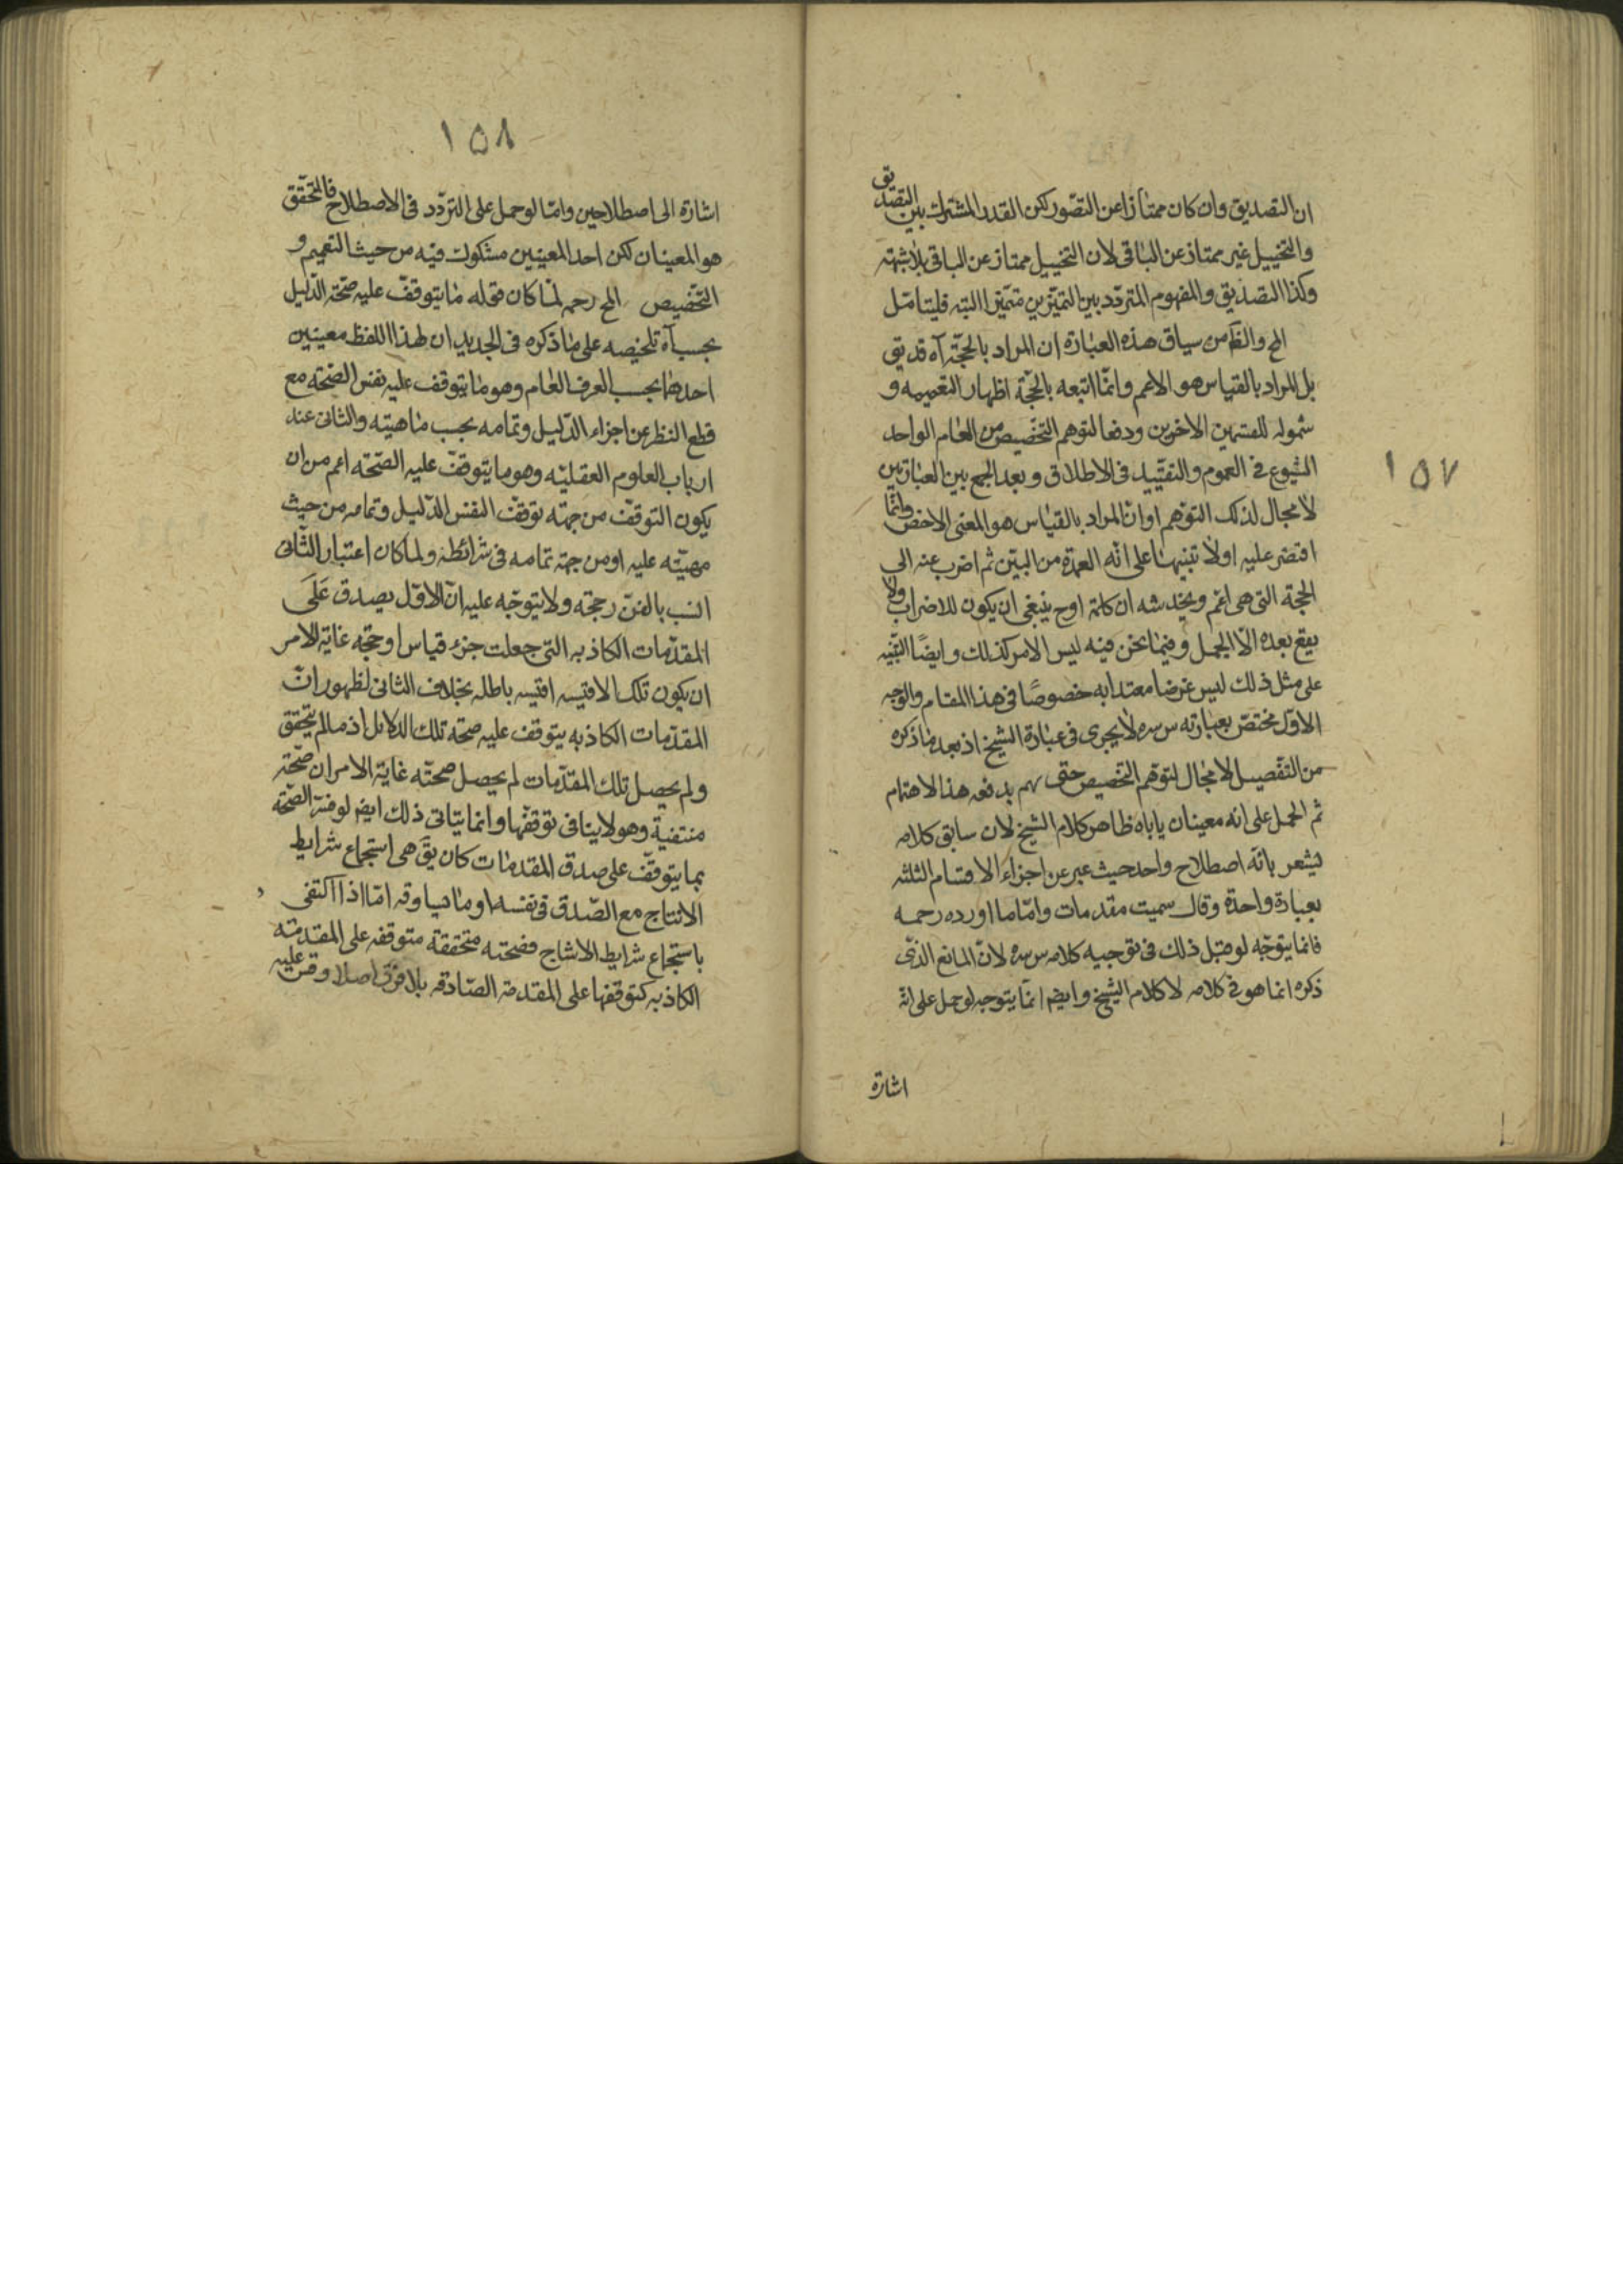 ١٥٧
ان التصديق وان كان ممتازا عن التصور لكن القدر المشترك بين التصديق
والتخييل غير ممتاز عن الباقى لان التخييل ممتاز عن الباقى بلا شبهته
وكذا التصديق والمفهوم المتردّد بين التميّزين متميّز البتة فليتامّل
المح والظ من سياق هذه العبارة ان المراد بالحجّة آه قد يق
بل المراد بالقياس هو الاعم وانّما اتبعه بالحجّة اظهار التعميمه و
شموله للقسمين الاخرين ودفعا لتوهم التخصيص من العام الواحد
الشيوع فى العموم والتقييد فى الاطلاق وبعد الجمع بين العبارتين
لا مجال لذلك التوهم او ان المراد بالقياس هو المعنى الاخص وانّما
اقتصر عليه اولا تنبيها على انّه العمدة من البيّن ثم اضرب عنه الى
الحجة التى هى اعم ويخدشه ان كلمة او ح ينبغى ان يكون للاضراب ولا
يقع بعده الّا الجمل وفيما نحن فيه ليس الامر كذلك وايضًا التنبيه
على مثل ذلك ليس غرضا معتدا به خصوصًا فى هذا المقام والوجه
الاوّل مختصّ بعبارته س سره لا يجرى فى عبارة الشيخ اذ بعد ما ذكره
من التفصيل لا مجال لتوهم التخصيص حتى يهم بدفعه هذا الاهتمام
ثم الحمل على انه معينان ياباه ظاهر كلام الشيخ لان سابق كلامه
ليشعر بانّه اصطلاح واحد حيث عبر عن اجزاء الاقسام الثلثه
بعبارة واحدة وقال سميت مقدمات وامّا ما اورده رحمه
فانما يتوجّه لو قبل ذلك فى توجيه كلامه س سره لانّ المانع الذى
ذكره انما هو فى كلامه لا كلام الشيخ وايضم انّما يتوجه لو حمل على انّه
اشارة
١٥٨
اشارة الى اصطلاحين وامّا لو حمل على التردّد فى الاصطلاح فالتحقّق
هو المعينان لكن احد المعينين مشكوك فيه من حيث التعميم و
التخصيص المح رحمه لمّا كان قوله ما يتوقّف عليه صحّة الدّليل
بحسب آه تلخيصه على ما ذكره فى الجديد ان لهذا اللفظ معينين
احدهما بحسب العرف العام وهو ما يتوقف عليه نفس الصّحّة مع
قطع النظر عن اجزاء الدّليل وتمامه بحسب ماهيته والثانى عند
ارباب العلوم العقليّه وهو ما يتوقّف عليه الصّحّة اعم من ان
يكون التوقّف من جهته توقف النفس الدّليل وتمامه من حيث
مهيّته عليه او من جهة تمامه فى شرائطه ولما كان اعتبار الثّانى
انسب بالفنّ رجحّه ولا يتوجّه عليه انّ الاوّل يصدق على
المقدّمات الكاذبه التى جعلت جزء قياس او حجّه غاية الامر
ان يكون تلك الاقيسه اقيسه باطله بخلاف الثانى لظهور انّ
المقدّمات الكاذبه يتوقف عليه صحّة تلك الدلائل اذ ما لم يتحقق
ولم يحصل تلك المقدّمات لم يحصل صحّته غاية الامر ان صحّته
منتفية وهو لا ينافى توقفها وانما يتاتى ذلك ايضم لو فسّر الصّحّة
بما يتوقّف على صدق المقدمات كان يق هى استجماع شرايط
الانتاج مع الصّدق فى نفسه او ما يساوقه امّا اذا اكتفى
باستجماع شرايط الانتاج فصحّته متحققة متوقفه على المقدمته
الكاذبه كتوقفها على المقدمة الصّادقه بلا فرق اصلا وقس عليه